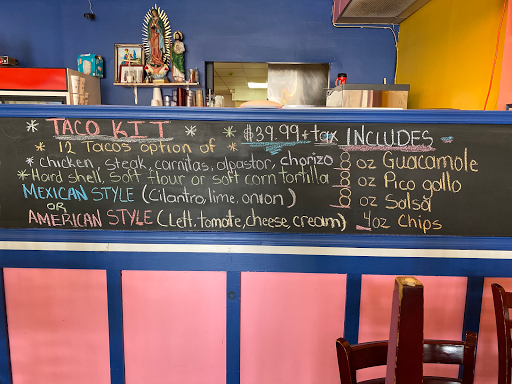 * TACO KIT * * $39.99 + tax INCLUDES -
* 12 Tacos option of *
chicken, steak, carnitas, alpastor, chorizo
* Hard shell, soft flour or soft corn tortilla
MEXICAN STYLE (Cilantro, lime, onion)
OR
AMERICAN STYLE (Lett, tomate, cheese, cream)
8 oz Guacamole
8 oz Pico gallo
8 oz Salsa
4oz Chips